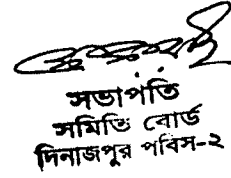 সভাপতি
সমিতি বোর্ড
দিনাজপুর পবিস-২